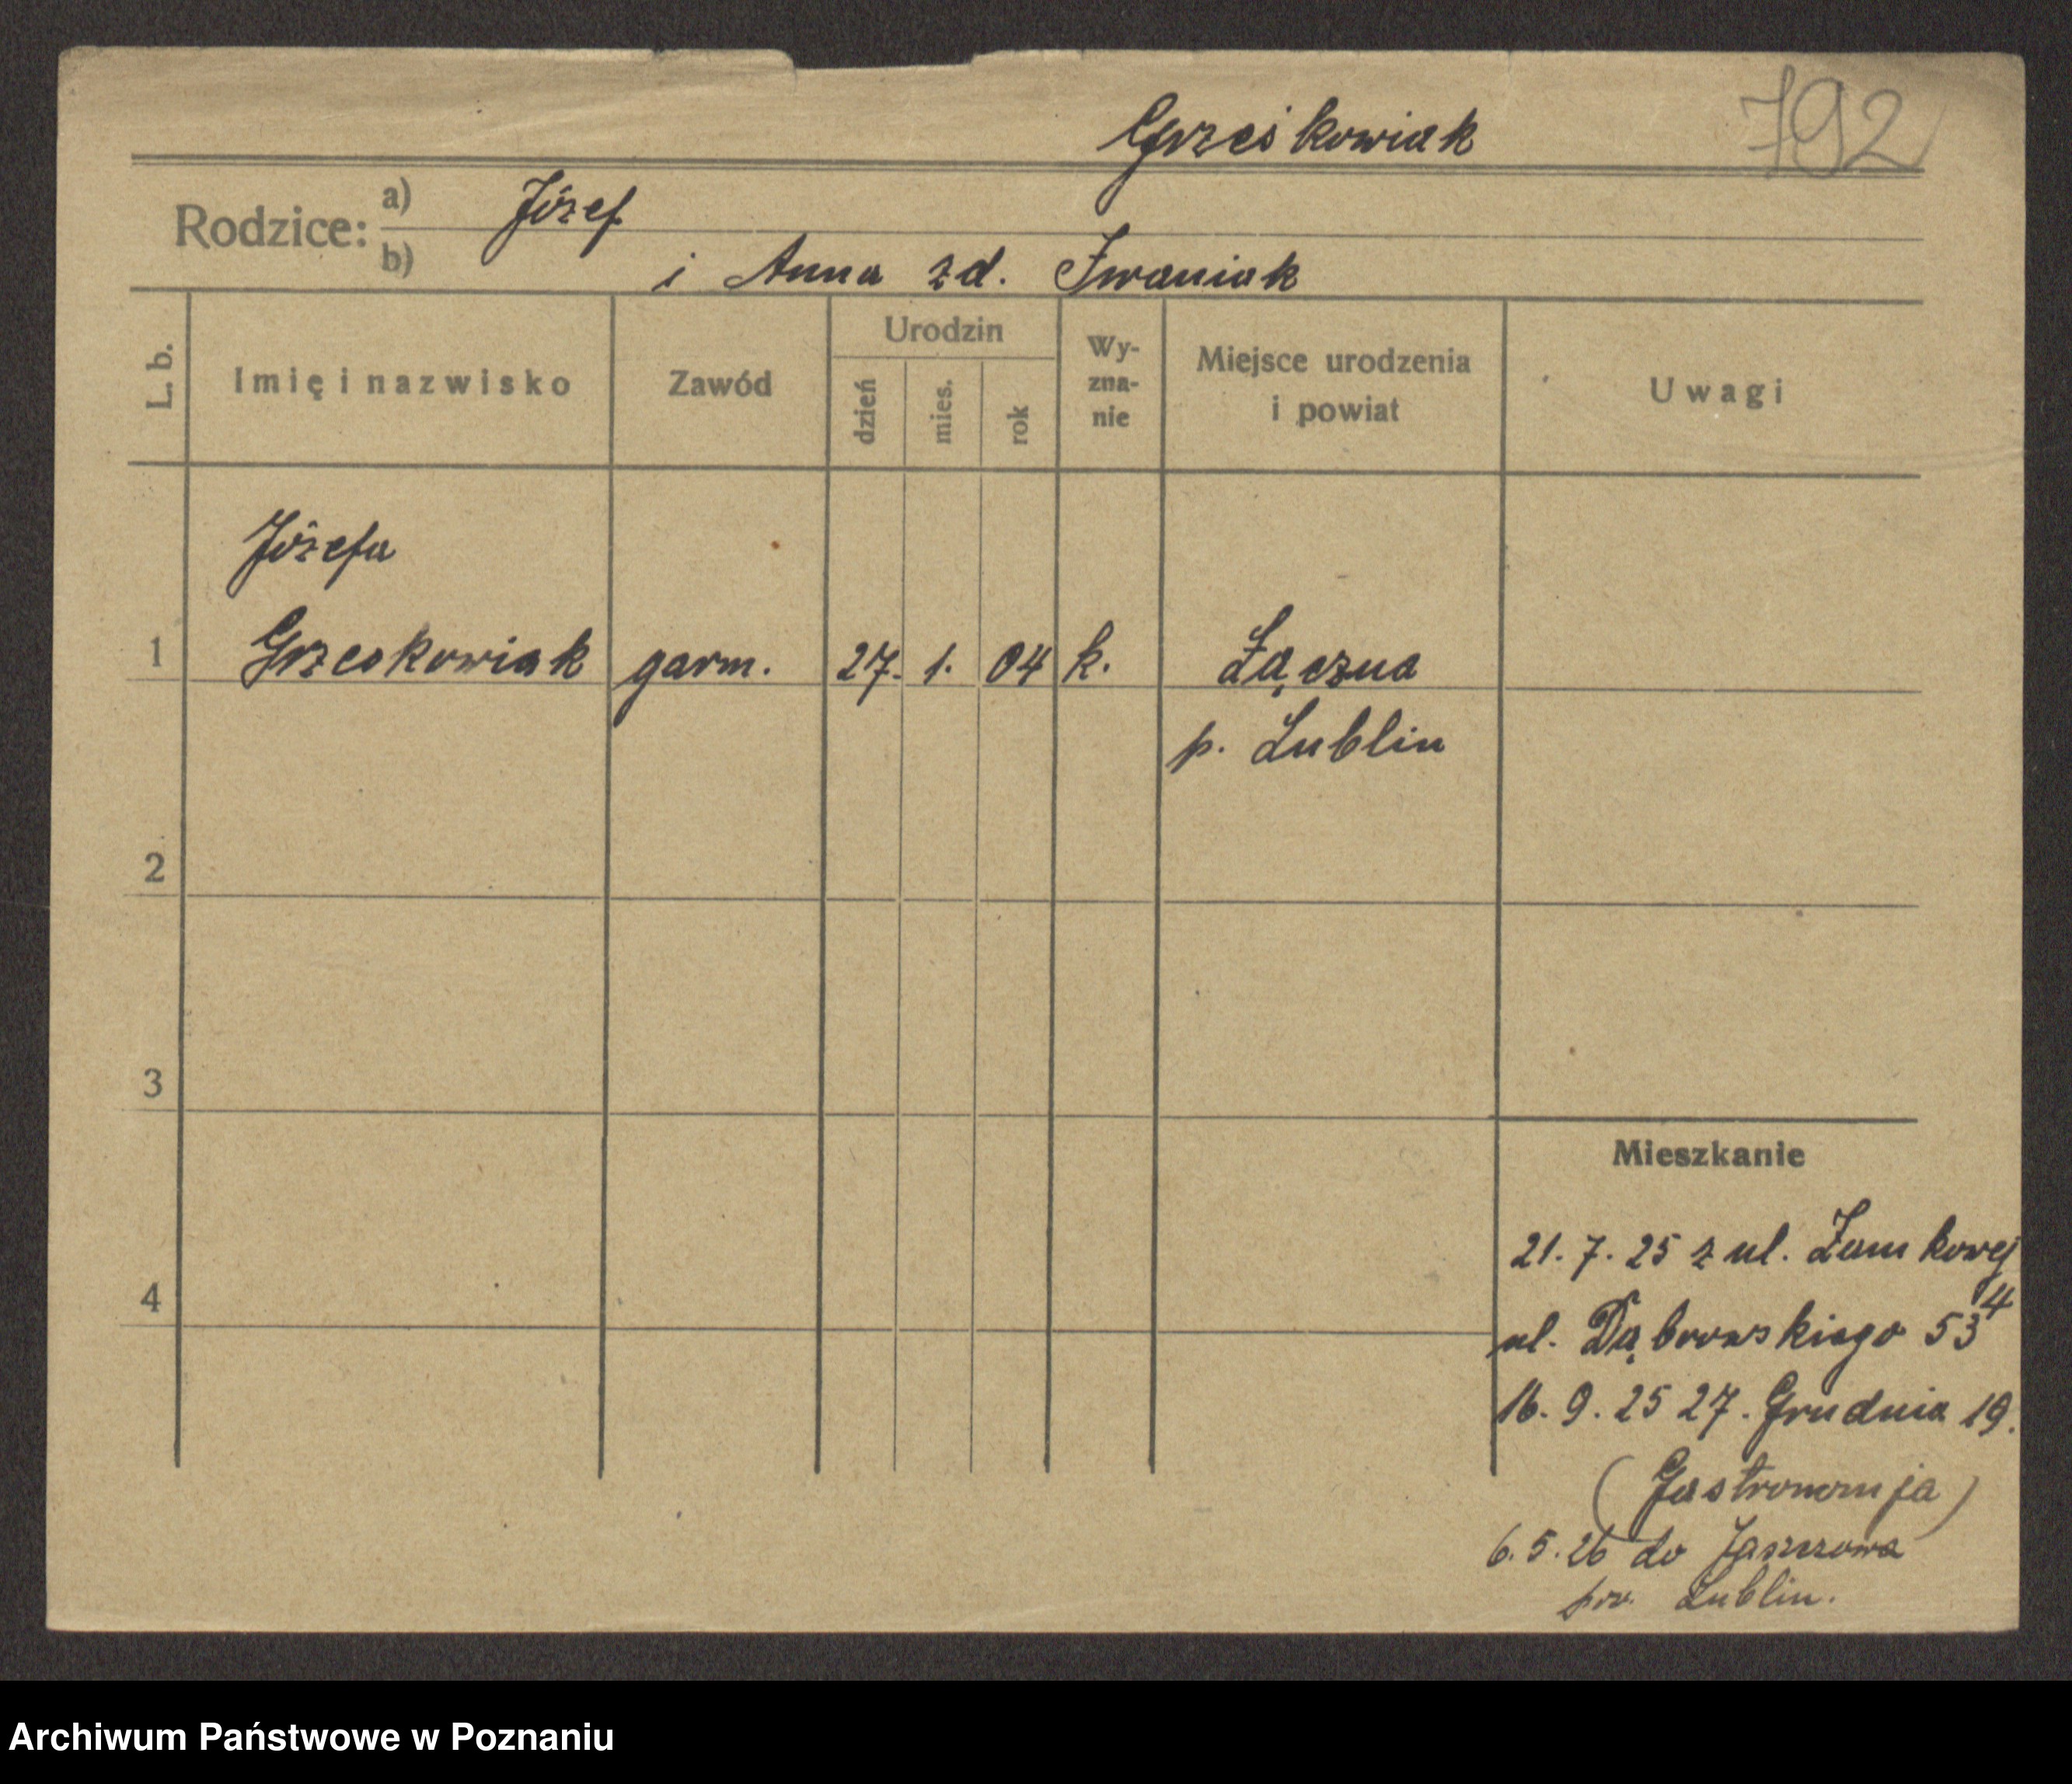 Grześkowiak
792
Rodzice: a) Józef
b) i Anna zd. Iwaniak
L. b.
Imię i nazwisko
Zawód
Urodzin
dzień
mies.
rok
Wy-
zna-
nie
Miejsce urodzenia
i powiat
Uwagi
Józefa
1 Grzeskowiak garm. 27. 1. 04 k. Łączna
p. Lublin
2
3
Mieszkanie
21. 7. 25 z ul. Zamkowej 4
4
ul. Dąbrowskiego 53
16. 9. 25 27. Grudnia 19.
(Gastronomja)
6. 5. 26 do Jaszczowa
pow. Lublin.
Archiwum Państwowe w Poznaniu